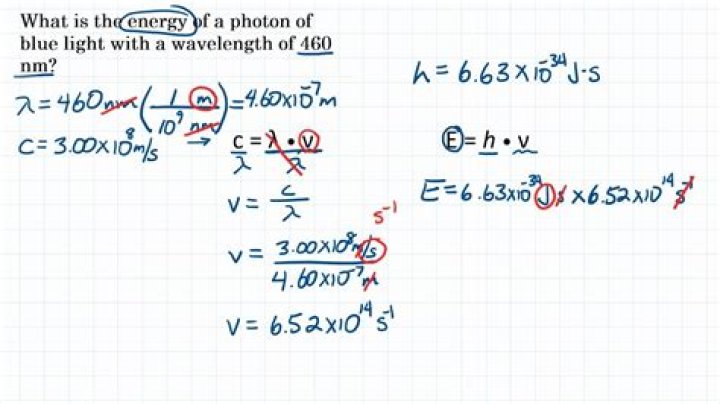 What is the energy of a photon of
blue light with a wavelength of 460
nm?
λ = 460 nm (1 m / 10⁹ nm) = 4.60×10⁻⁷ m
c = 3.00×10⁸ m/s →
c = λ • ν
λ λ
ν = c / λ
s⁻¹
ν = 3.00×10⁸ m/s / 4.60×10⁻⁷ m
ν = 6.52×10¹⁴ s⁻¹
h = 6.63×10⁻³⁴ J·s
E = h • ν
E = 6.63×10⁻³⁴ J·s × 6.52×10¹⁴ s⁻¹